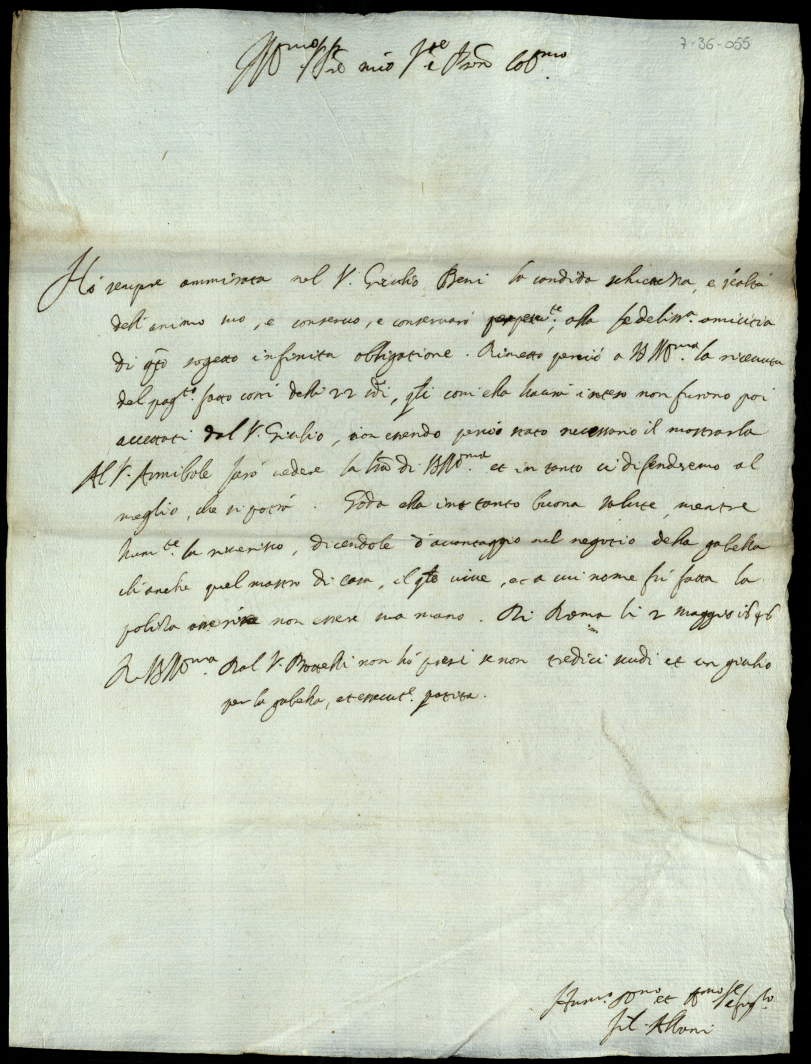 7-36-055
Ill.mo Sr mio Sre e Pron Col.mo
Hò sempre ammirata nel S. Giulio Beni la candida schiettezza, e realtà
dell'animo suo, e conservo, e conservarò alla fedeliss.a amicitia
di qto sogetto infinita obligatione. Rimetto perciò a V.S. Ill.ma la ricevuta
del pag.to fatto costì delli 22 di, qli come ella haurà inteso non furono poi
accettati dal S. Giulio, non essendo perciò stato necessario il mostrarla
Al S. Annibale farò vedere la lra di V.S. Ill.ma et in tanto ci difenderemo al
meglio, che si potrà. Goda ella in tanto buona salute, mentre
hum.te la riverisco, dicendole d'avantaggio nel negotio della gabella
che anche quel mastro di casa, il qle vive, et a cui nome fù fatta la
poliza asserisce non essere sua mano. Di Roma li 2 maggio 1646
Di V.S. Ill.ma Dal S. non hò presi se non tredici scudi et un giulio
per la gabella, et partita.
Hum. et
Fil. Alboni